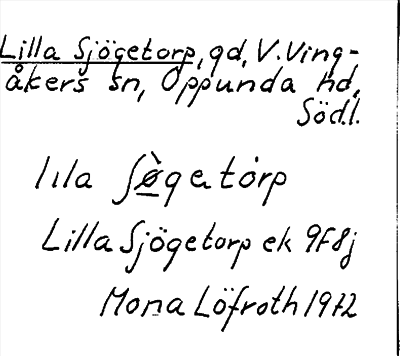 Lilla Sjögetorp, gd, V. Ving-
åkers sn, Oppunda hd,
Södl.
lıla ʃø̀getȯrp
Lilla Sjögetorp ek 9F8j
Mona Löfroth 1972